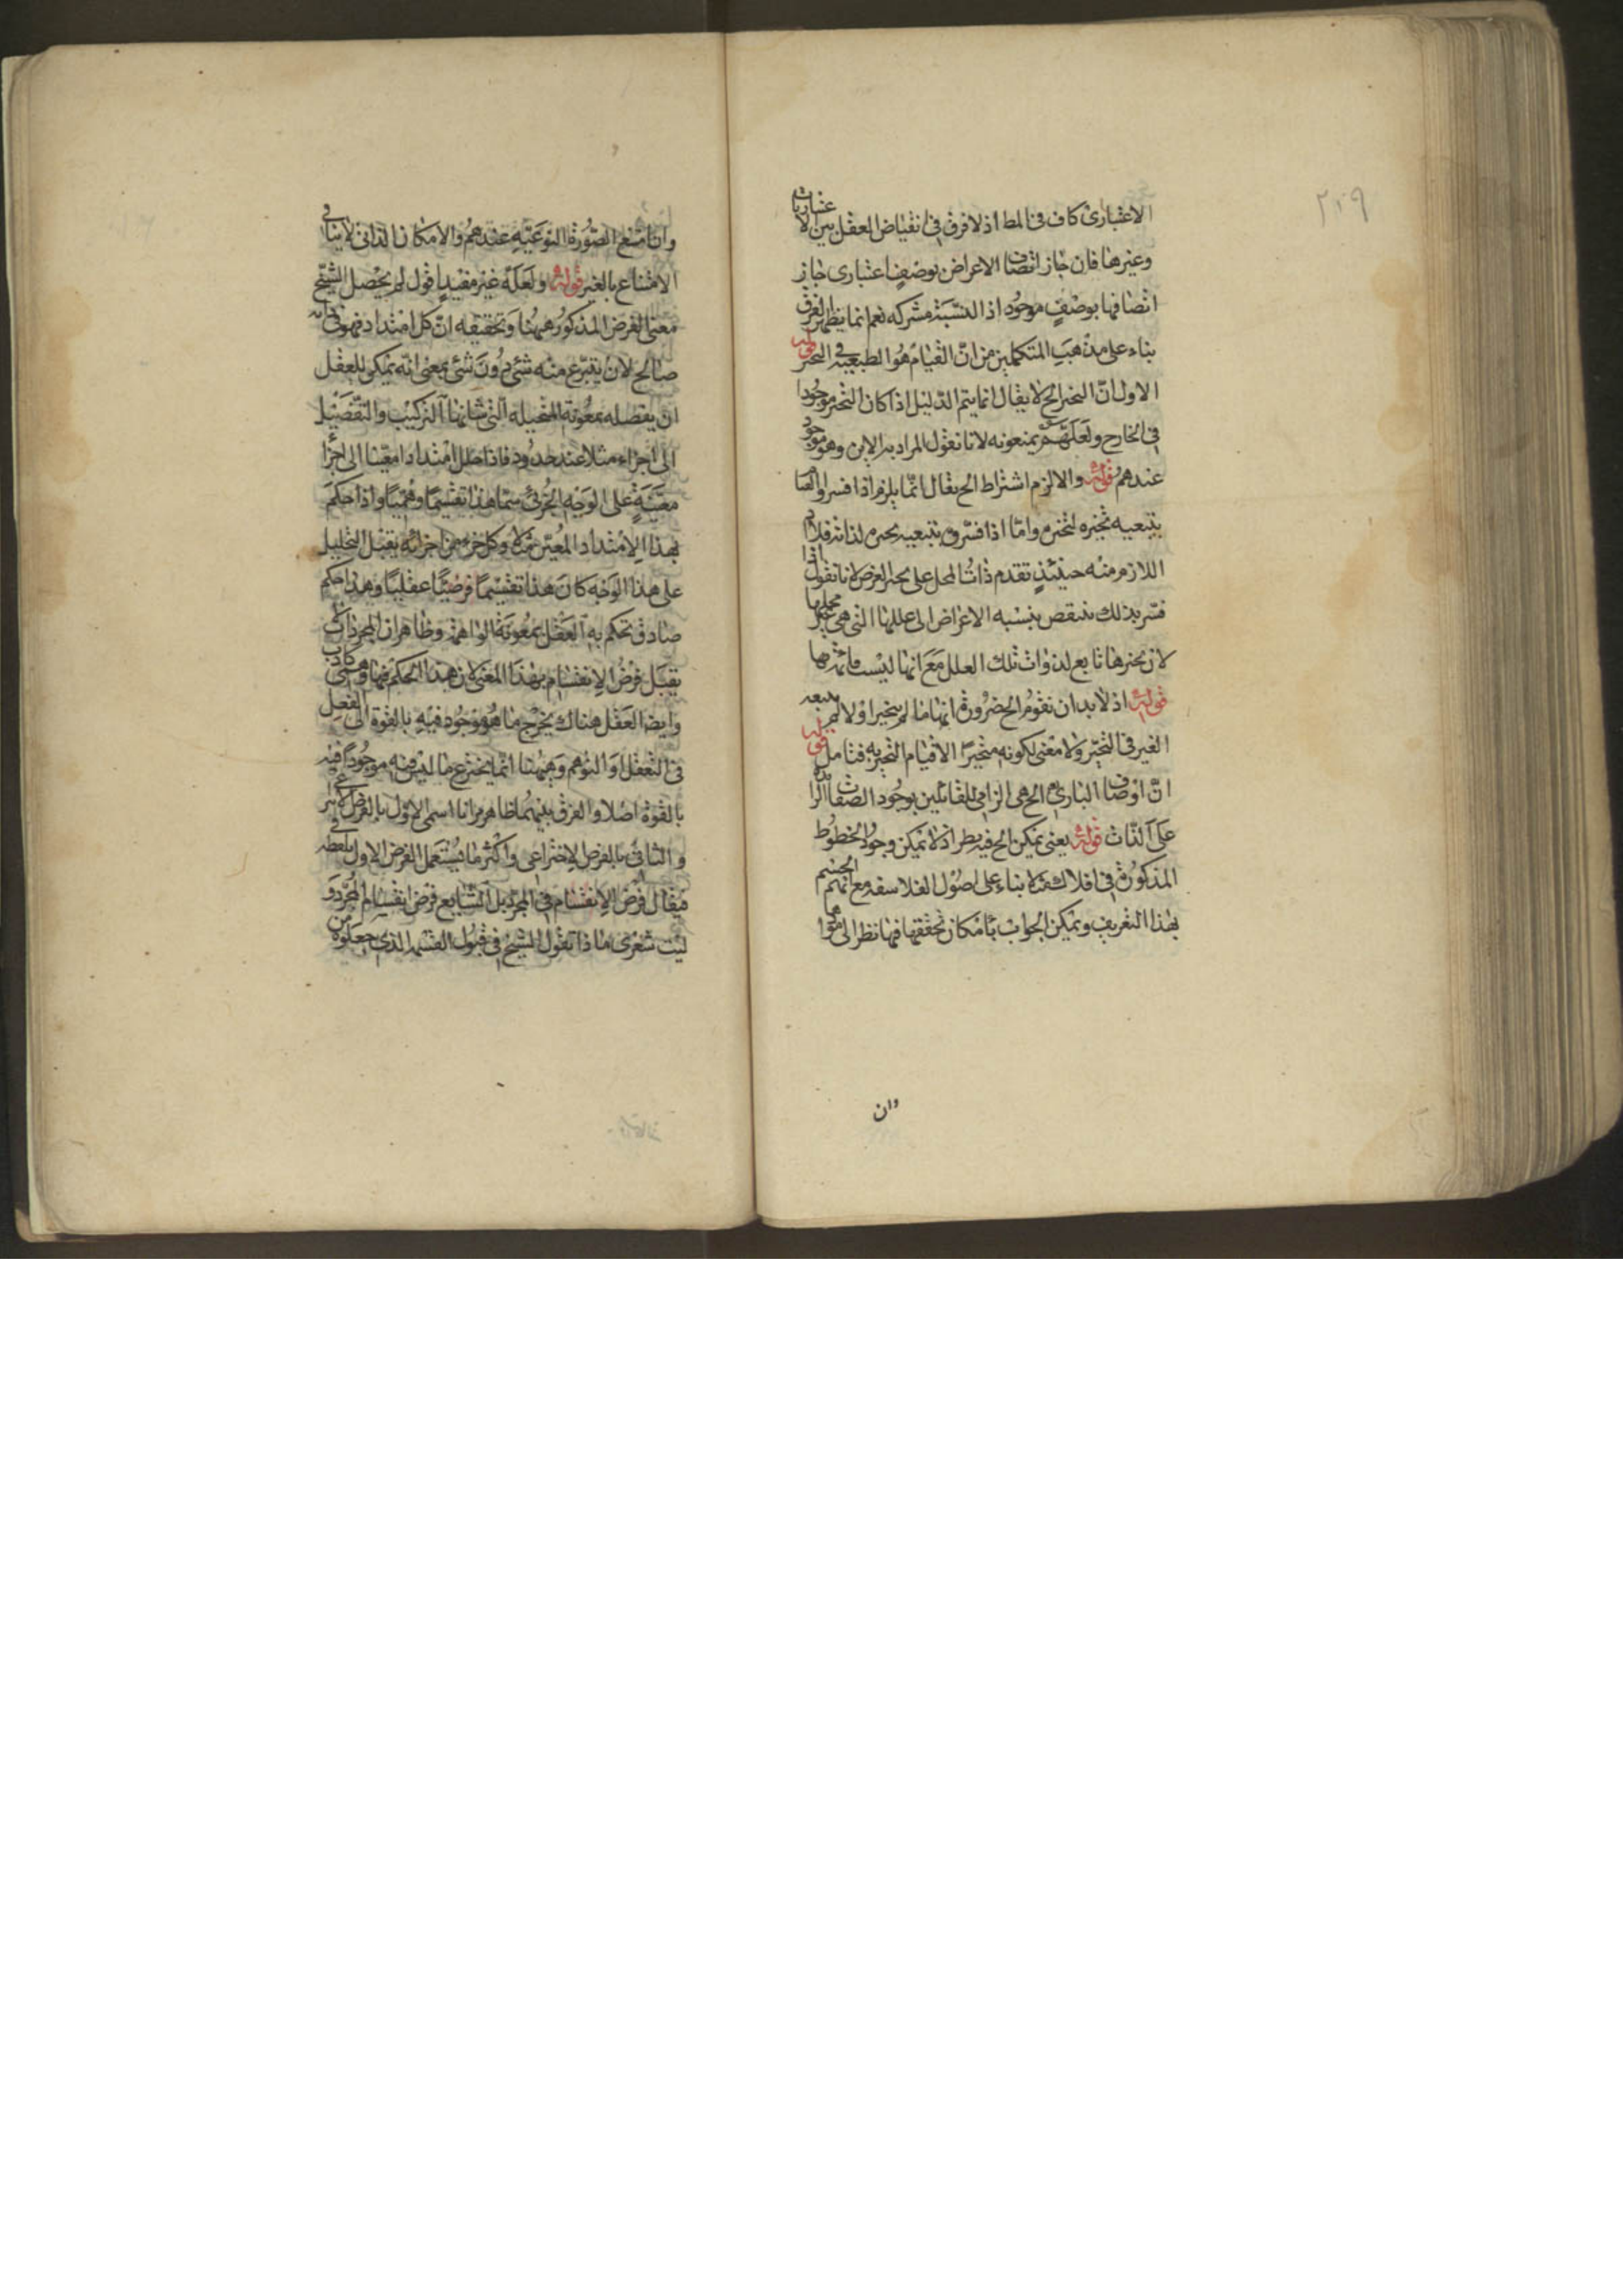 ٢٠٩
الاعتبارى كاف فى المط اذ لا فرق فى انقياض العقل بين الاعتباريات
وغيرها فان جاز اتصاف الاعراض بوصف اعتبارى جاز
اتصافها بوصف موجود اذ النسبة مشتركه نعم انما يظهر الفرق
بناء على مذهب المتكلمين من ان القيام هو الطبعيه فى التحيز قوله
الاول ان التحيز الخ لا يقال انما يتم الدليل اذا كان التحيز موجودا
فى الخارج ولعلهم يمنعونه لانا نقول المراد به الاين وهو موجود
عندهم قوله والا لزم اشتراط الخ يقال انما يلزم اذا فسروا القيام
بتبعيه تحيزه لتحيزه واما اذا فسروه بتبعيه تحيزه لذاته فلا اذ
اللازم منه حينئذ تقدم ذات المحل على تحيز العرض لانا نقول اذا
فسر بذلك ينتقض بنسبه الاعراض الى عللها التى هى غير محلها
لان تحيزها تابع لذوات تلك العلل مع انها ليست قائمة بها
قوله اذ لابد ان تقوم الخ ضرورة انها ما لم يتحيز اولا لم يتبعه
الغير فى التحيز ولا معنى لكونه متحيزا الا قيام التحيز به فتامل قوله
ان اوصاف البارى الخ هى الزامى للقائلين بوجود الصفات الزائدة
على الذات قوله يعنى يمكن الخ فيه نظر اذ لا يمكن وجود الخطوط
المذكورة فى افلاك مثلا بناء على اصول الفلاسفه مع انهم الجسم
بهذا التعريف ويمكن الجواب بامكان تحققها فيها نظرا الى
وان
وان امتنع الصورة النوعية عندهم والامكان الذاتى لا ينافى
الامتناع بالغير قوله ولعله غير مفيد اقول لم يحصل الشيخ
معنى الفرض المذكور ههنا وتحقيقه ان كل امتداد فهو فى ذاته
صالح لان ينتزع منه شئ دون شئ بمعنى انه يمكن للعقل
ان يفصله بمعونة المتخيله التى شانها التركيب والتفصيل
الى اجزاء مثلا عند حدود فاذا حلل امتدادا معينا الى اجزا
معينة على الوجه الجزئى سما هذا تقسيما وهميا واذا حكم
بهذا الامتداد المعين مثلا وكل جزء من اجزائه يقبل التحليل
على هذا الوجه كان هذا تقسيما فرضيا عقليا وهذا حكم
صادق تحكم به العقل بمعونة الواهمة وظاهر ان المجردات لا
يقبل فرض الانقسام بهذا المعنى لان هذا الحكم فيها وهمى كاذب
وايضا العقل هناك يخرج ما هو موجود فيه بالقوة الى الفعل
فى التعقل او التوهم وههنا انما يخترع ما ليس فيه موجودا فيه
بالقوة اصلا والفرق بينهما ظاهر وانا اسمى الاول بالفرض الانتزاعى
والثانى بالفرض الاختراعى واكثر ما يستعمل الفرض الاول بلفظه فى
فيقال فرض الانقسام فى المجرد بل الشايع فرض انقسام المجرد و
ليت شعرى ما ذا تقول الشيخ فى قبول القسمه الذى جعلوه من